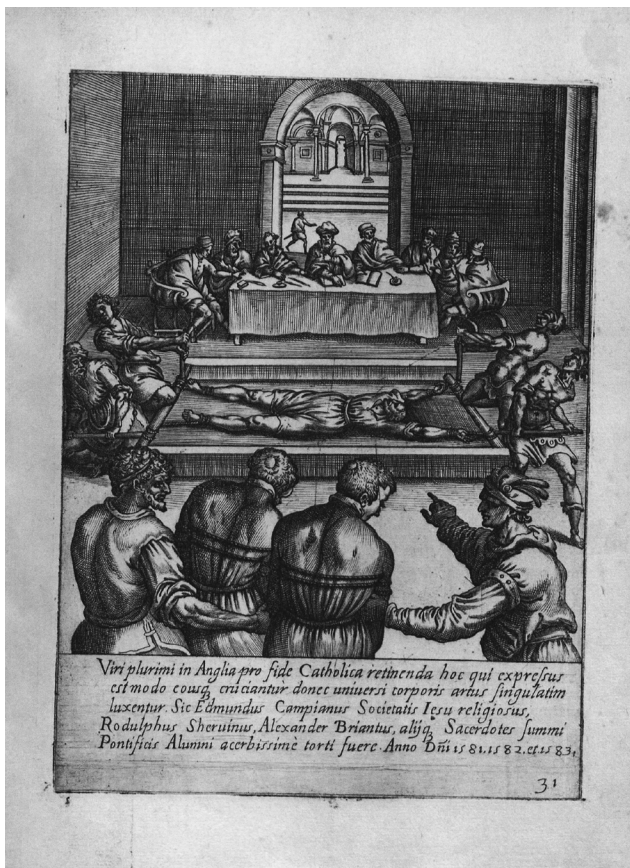 Viri plurimi in Anglia pro fide Catholica retinenda hoc qui expreſsus
est modo eousq₃ cruciantur donec universi corporis artus ſingulatim
luxentur. Sic Edmundus Campianus Societatis Ieſu religioſus,
Rodulphus Sheruinus, Alexander Briantus, alijq₃ Sacerdotes ſummi
Pontificis Alumni acerbissimè torti fuere. Anno Dñi 1581. 1582. et. 1583.
31